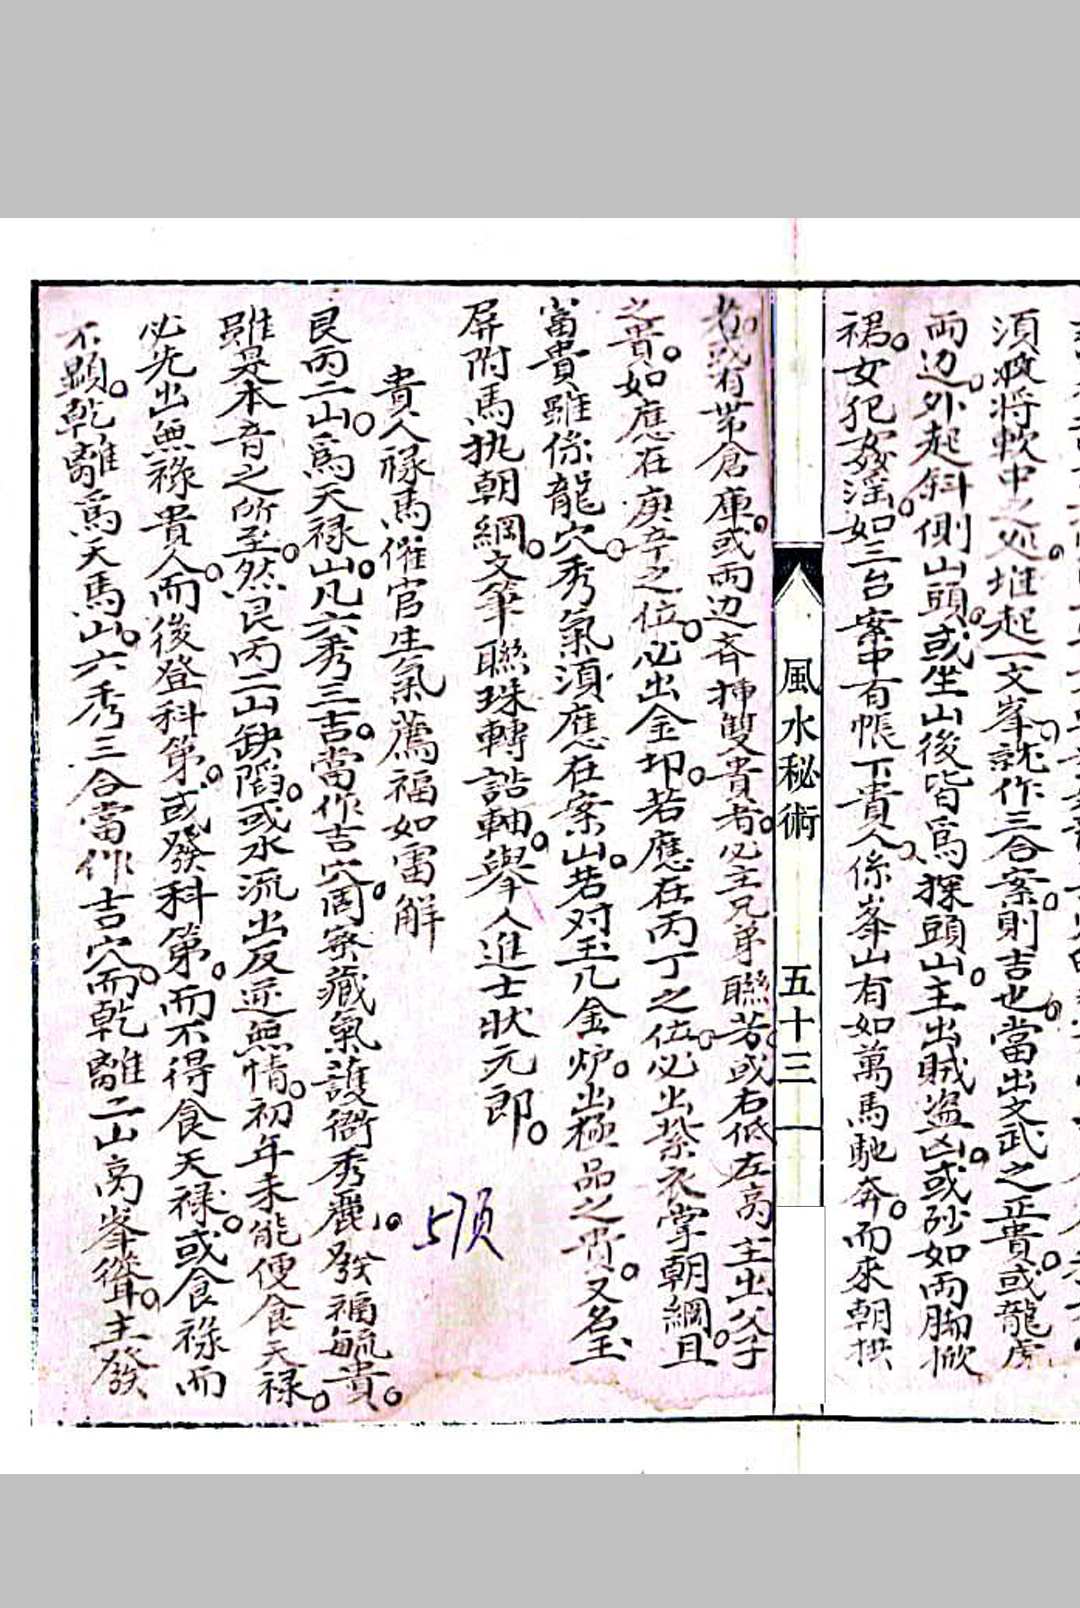 須峻將軟中之処。堆起一文峯。就作三合案。則吉也。當出文武之正貴。或龍虎
両边。外起斜側山頭。或坐山後皆爲探頭山。主出賊盗凶。或砂如両脚掀
裙。女犯姦淫。如三台案中有帳下貴人。係峯山有如萬馬馳奔。而來朝拱
風水秘術 五十三
者。或有帯倉庫。或両边斉挿雙貴者。必主兄弟聯芳。或右低左高主出父子
之貴。如應在庚辛之位。必出金印。若應在丙丁之位。必出紫衣掌朝綱。且
富貴雖係龍穴。秀氣須應在案山。若对玉几金炉。出極品之貴。又名玉
屏附馬执朝綱。文筆聯珠轉誥軸。舉人進士狀元郎。
貴人祿馬催官生氣薦福如雷解
艮丙二山。爲天禄山。凡六秀三吉。當作吉穴。周宻藏氣護衛秀麗。發福毓貴。
雖是本音之所至。然艮丙二山缺陷。或水流出反逆無情。初年未能便食天禄。
必先出無祿貴人。而後登科第。或發科第。而不得食天禄。或食祿而
不顯。乾離爲天馬山。六秀三合當作吉穴。而乾離二山高峯聳。主發
5页